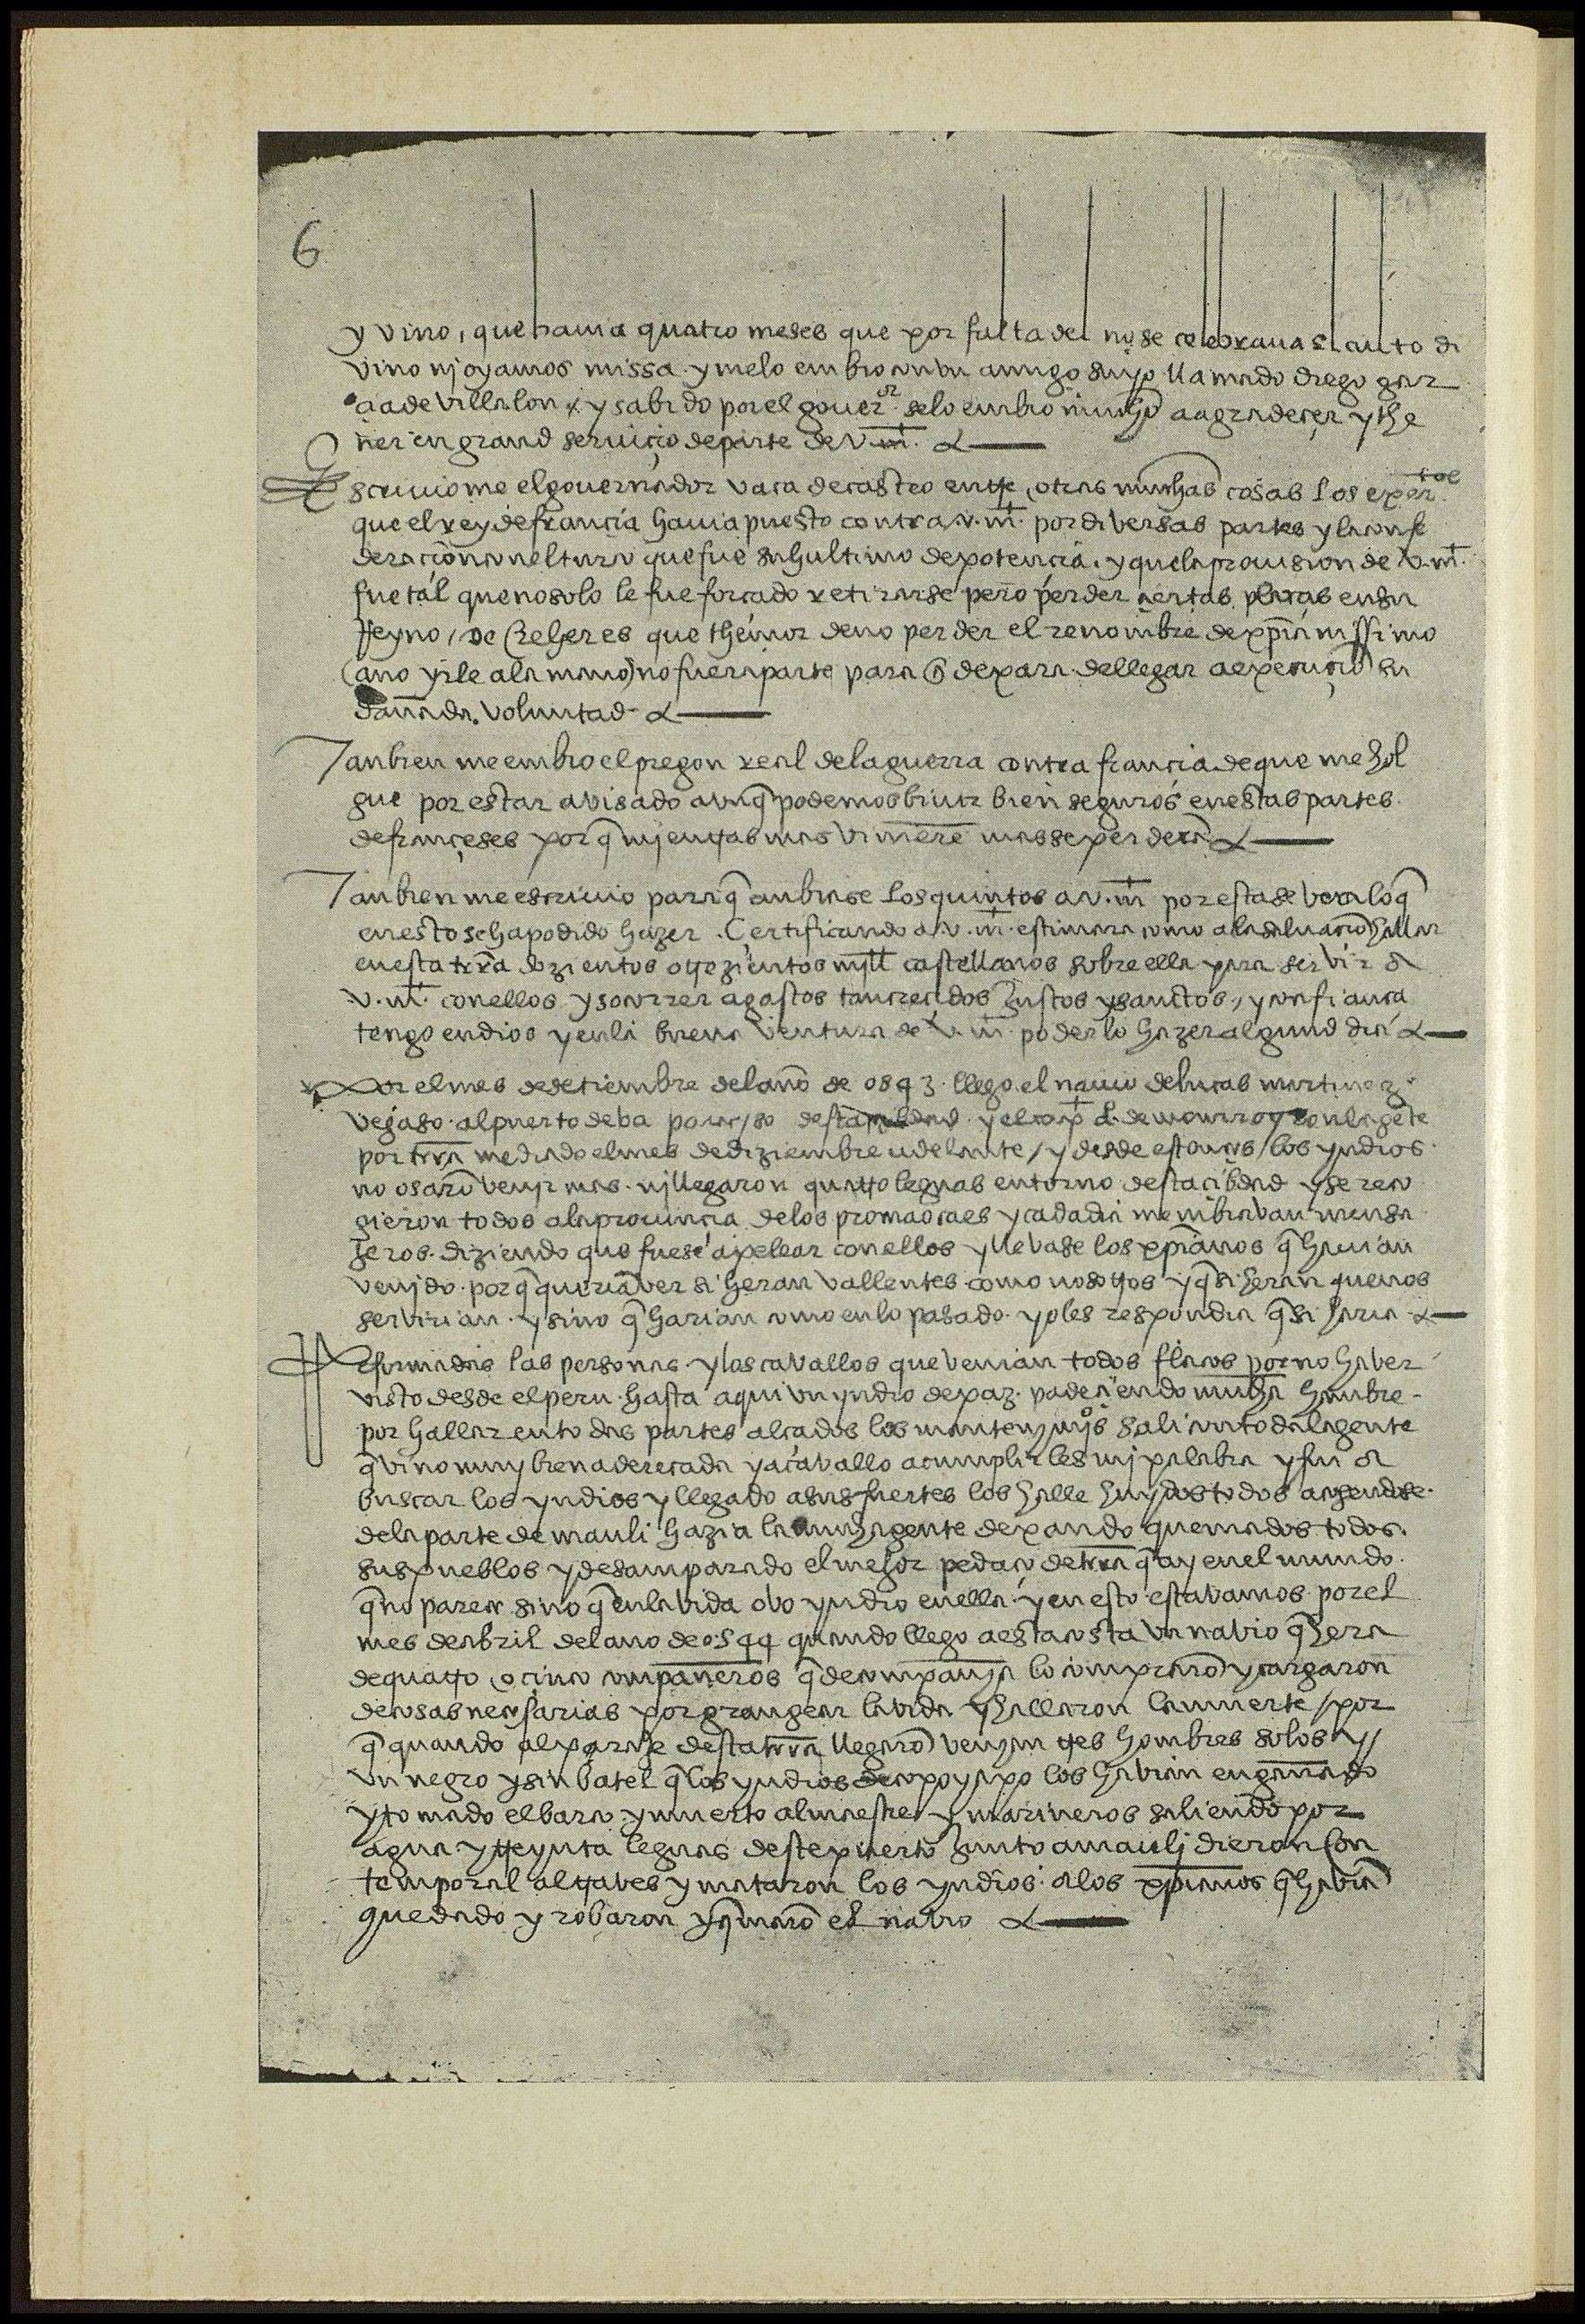 6
y vino, que havia quatro meses que por falta del no se celebrava el auto di
vino nj oyamos missa. y me lo embio con un amigo suyo llamado diego gar
cia de villalon y sabido por el gouer.or se lo embio mucho a agradeçer y the
ner en grand seruiçio de parte de v. m.
Escriuiome el gouernador vaca de castro entre otras munchas cosas los exerçitos
que el rey de françia hauia puesto contra v. m. por diversas partes y la confe
deraçion con el turco que fue su hultimo de potencia. y que la prouision de v. m.
fue tal que no solo le fue forçado retirarse pero perder çiertas plaças en su
Reyno, de creher es que themor de no perder el renombre de xp̄ianissimo
(ano yrle a la mano) no fuera parte para q̄ dexara de llegar a execuçiō su
dañada voluntad
Tanbien me embio el pregon real de la guerra contra françia de que me hol
gue por estar avisado avnq̄ podemos biuir bien seguros en estas partes
de françeses porq̄ mjentras mas vinierē mas se perderā
Tanbien me escriuio para q̄ embiase los quintos a v. m. por esta se vera lo q̄
en esto se ha podido hazer. Certificando a v. m. estimara como a la saluaciō hallar
en esta tr̄ra dozientos o trezientos mjll castellanos sobre ella para servir a
v. m. con ellos y socorrer a gastos tan creçidos justos y sanctos, y confiança
tengo en dios y en la buena ventura de v. m. poderlo hazer algund dia
Por el mes de setiembre del año de 0543. llego el navio de lucas martinez
vegaso al puerto de valparayso desta çibdad. y el cap.n al.o de monrroy con la gēte
por tr̄ra mediado el mes de diziembre adelante, y desde estonçes los yndios
no osarō venjr mas. nj llegaron quatro leguas entorno desta çibdad y se reco
gieron todos a la prouinçia de los promaocaes y cada dia me imbiavan mensa
jeros. diziendo que fuese a pelear con ellos y llevase los xp̄ianos q̄ havian
venjdo. porq̄ queriā ver si heran vallentes como nosotros y q̄ si heran que nos
servirian. y sino q̄ harian como en lo pasado. yo les respondia q̄ si haria
Reformadas las personas. y los cavallos que venian todos flacos por no haver
visto desde el peru hasta aqui vn yndio de paz. padeçiendo mucha hambre.
por hallar en todas partes alçados los mantenjmj.os sali con toda la gente
q̄ vino muy bien adereçada y a cavallo a cumplirles mj palabra y fui a
buscar los yndios y llegado a sus fuertes los halle huydos todos acogiendose
de la parte de mauli hazia la mucha gente dexando quemados todos
sus pueblos y desamparado el mejor pedaço de tr̄ra q̄ ay en el mundo.
q̄ no pareçe sino q̄ en la vida ovo yndio en ella. y en esto estavamos por el
mes de abril del año de 0544 quando llego a esta costa vn navio q̄ hera
de quatro o çinco compañeros q̄ de compañja lo comprarō y cargaron
de cosas neçesarias por grangear la vida y hallaron la muerte, por
q̄ quando al paraje desta tr̄ra llegarō venjan tres hombres solos y
vn negro y sin batel q̄ los yndios de copoyapo los havian engañado
y tomado el barco. y muerto al maestre y marineros saliendo por
agua. y treynta leguas deste puerto junto a mauli dieron con
temporal al traves y mataron los yndios a los xp̄ianos q̄ haviā
quedado y robaron y q̄marō el navio